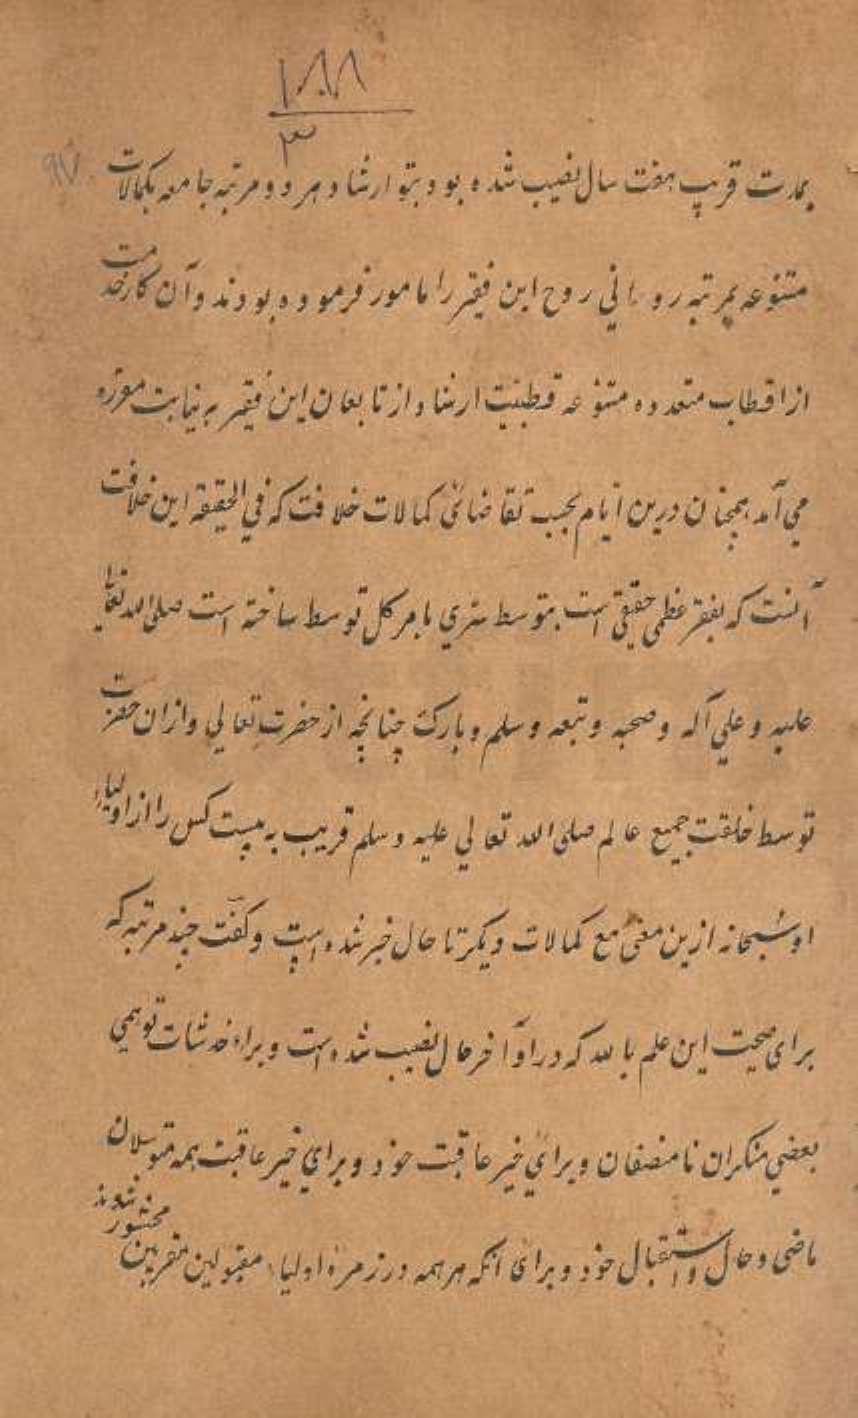 ۱۸۸
۳
۹۷
بمدت قریب هفت سال نصیب شده بود و بتو ارشاد هر دو مرتبه جامعه بکمالات
متنوعه بمرتبه روحانی روح این فقیر را مامور فرموده بودند و آن کار خدمت
از اقطاب متعدده متنوعه قطبیت ارشاد از تابعان این فقیر به نیابت مقرره
می آمد همچنان درین ایام بحسب تقاضائی کمالات خلافت که فی الحقیقة این خلافت
آنست که بفقر عظمی حقیقی است بتوسط سری بامر کل توسط ساخته است صلی الله تعالی
علیه و علی آله و صحبه و تبعه و سلم و بارک چنانچه از حضرت تعالی و ازان حضرت
توسط خلقت جمیع عالم صلی الله تعالی علیه و سلم قریب به بیست کس را از اولیاء
او سبحانه ازین معنی مع کمالات دیگر تا حال خبر شده است و گفت چند مرتبه که
برای صحت این علم بالله که در اوآخر حال نصیب شده است و براء خدشات توهمی
بعضی منکران نامنصفان و برای خیر عاقبت خود و برای خیر عاقبت همه متوسلان
ماضی و حال و استقبال خود و برای آنکه هر همه در زمرۀ اولیاء مقبولین مقربین
محشور شوند